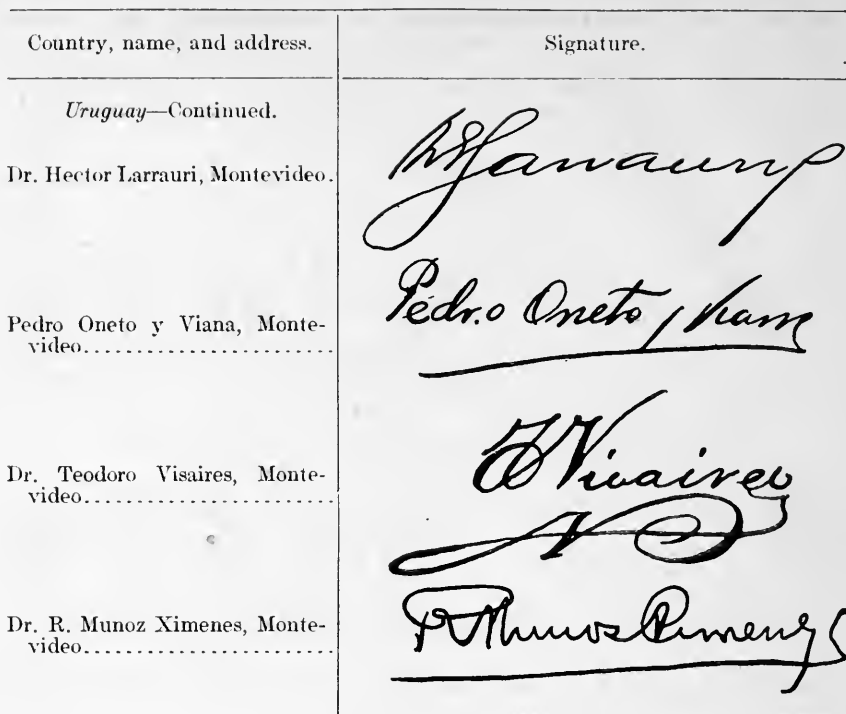 Country, name, and address.
Signature.
Uruguay—Continued.
Dr. Hector Larrauri, Montevideo.
Larrauri
Pedro Oneto y Viana, Monte-
video......................
Pedro Oneto y Viana
Dr. Teodoro Visaires, Monte-
video......................
T Visaires
Dr. R. Munoz Ximenes, Monte-
video......................
R Munoz Ximenez